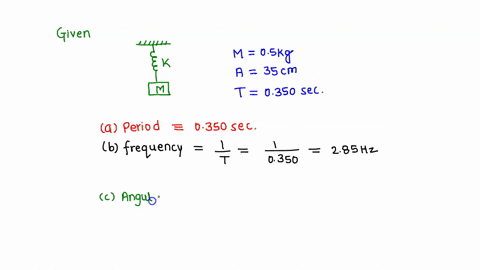 Given
K
M
M = 0.5kg
A = 35 cm
T = 0.350 sec.
(a) Period ≡ 0.350 sec.
(b) frequency = 1/T = 1/0.350 = 2.85 Hz
(c) Angul